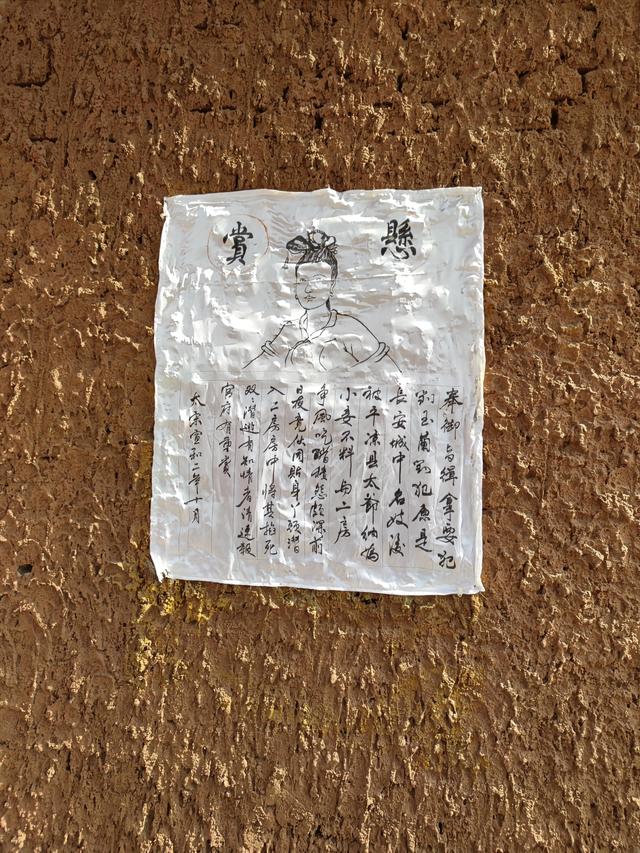 懸賞
奉御旨缉拿要犯
刘玉蘭刘犯原是
長安城中名妓後
被平凉县太爺纳為
小妾不料与二房
争風吃醋積怨颇深前
日夜竟伙同貼身丫頭潜
入二房房中将其掐死
双々潜逃有知情者清速報
官府有重賞
大宋宣和二年十月